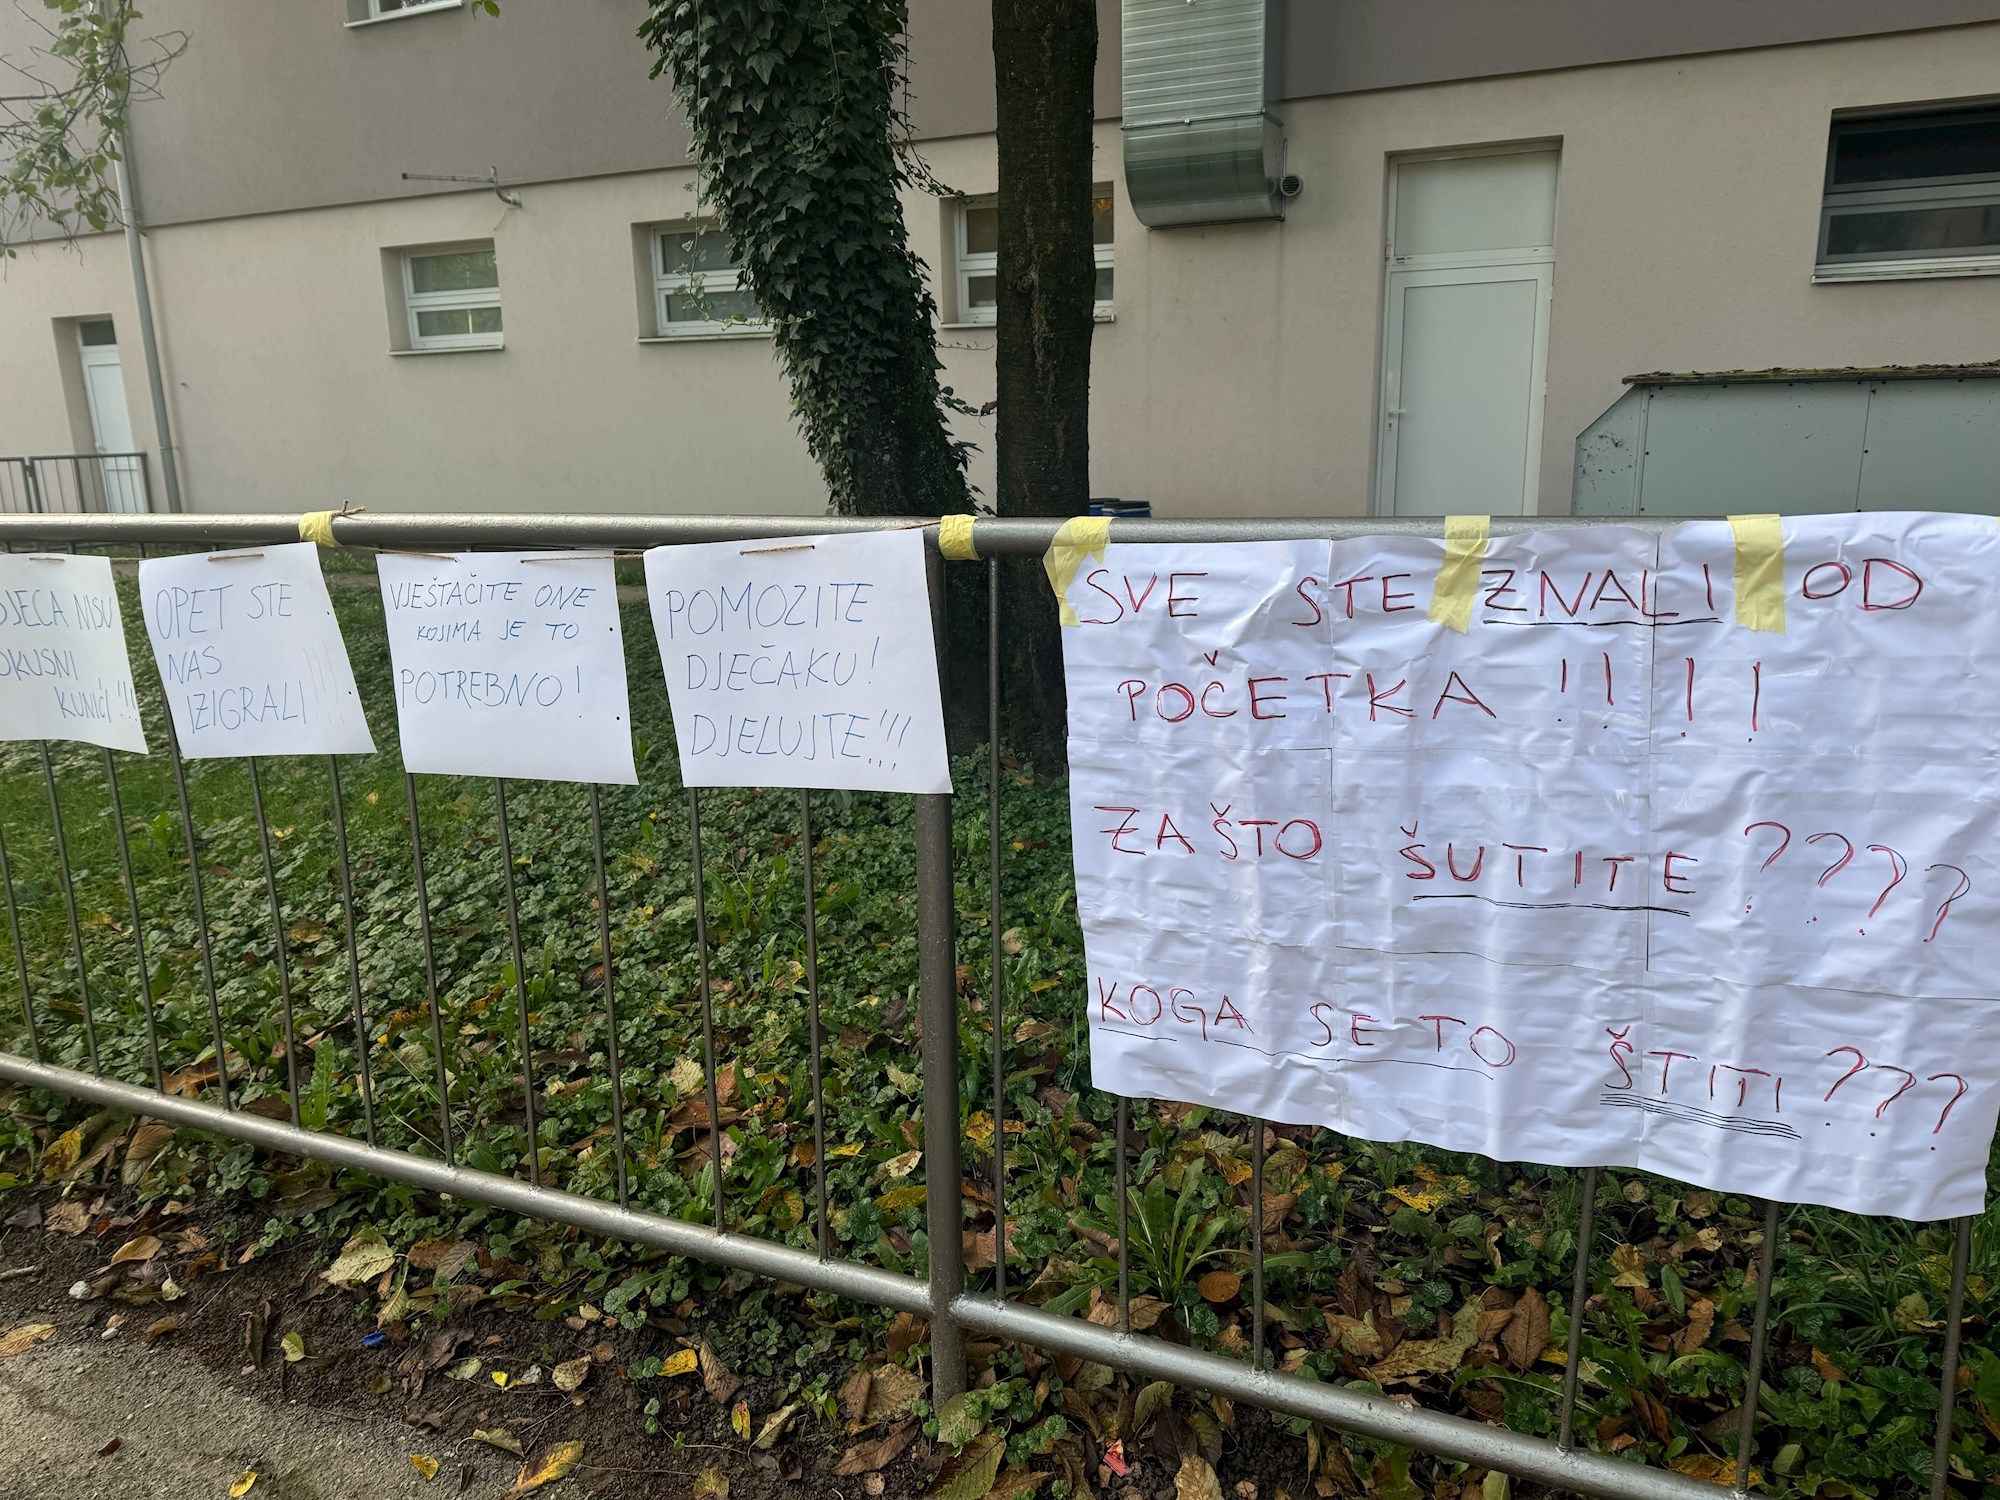 DJECA NISU
POKUSNI
KUNIĆI!!!
OPET STE
NAS
IZIGRALI!!!
VJEŠTAČITE ONE
KOJIMA JE TO
POTREBNO!
POMOZITE
DJEČAKU!
DJELUJTE!!!
SVE STE ZNALI OD
POČETKA!!!!
ZAŠTO ŠUTITE????
KOGA SE TO ŠTITI???